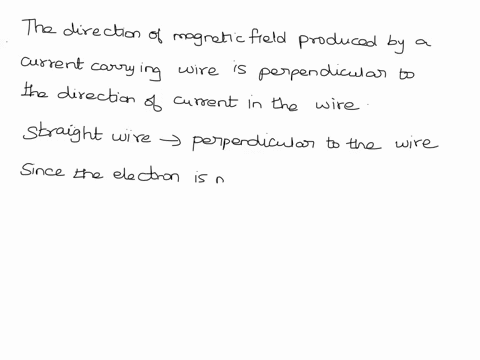 The direction of magnetic field produced by a
current carrying wire is perpendicular to
the direction of current in the wire.
Straight wire → perpendicular to the wire
Since the electron is